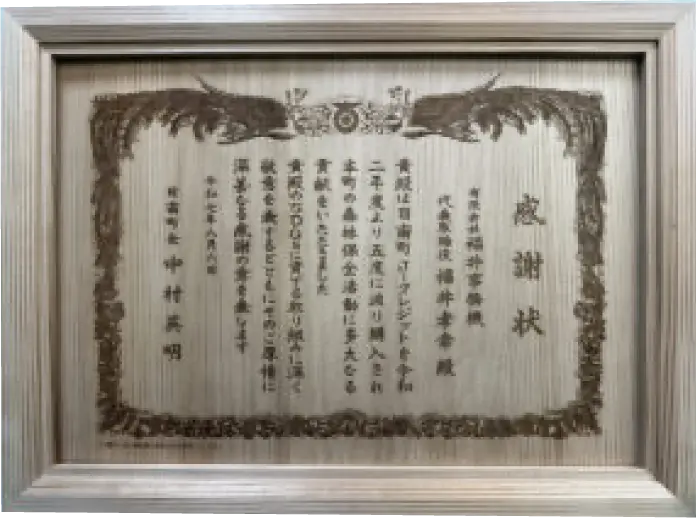 感謝状
有限会社 福井事務機
代表取締役 福井孝幸 殿
貴殿は日南町J-クレジットを令和
二年度より五度に渡り購入され
本町の森林保全活動に多大なる
貢献をいただきました
貴殿のなかひとに育てる取り組みに深く
敬意を表するとともにそのご厚情に
深甚なる感謝の意を表します
令和七年八月六日
日南町長 中村英明